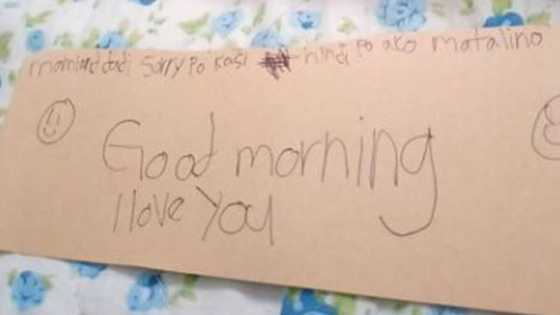 momand dadi sorry po kasi hindi po ako matalino
Good morning
I love you